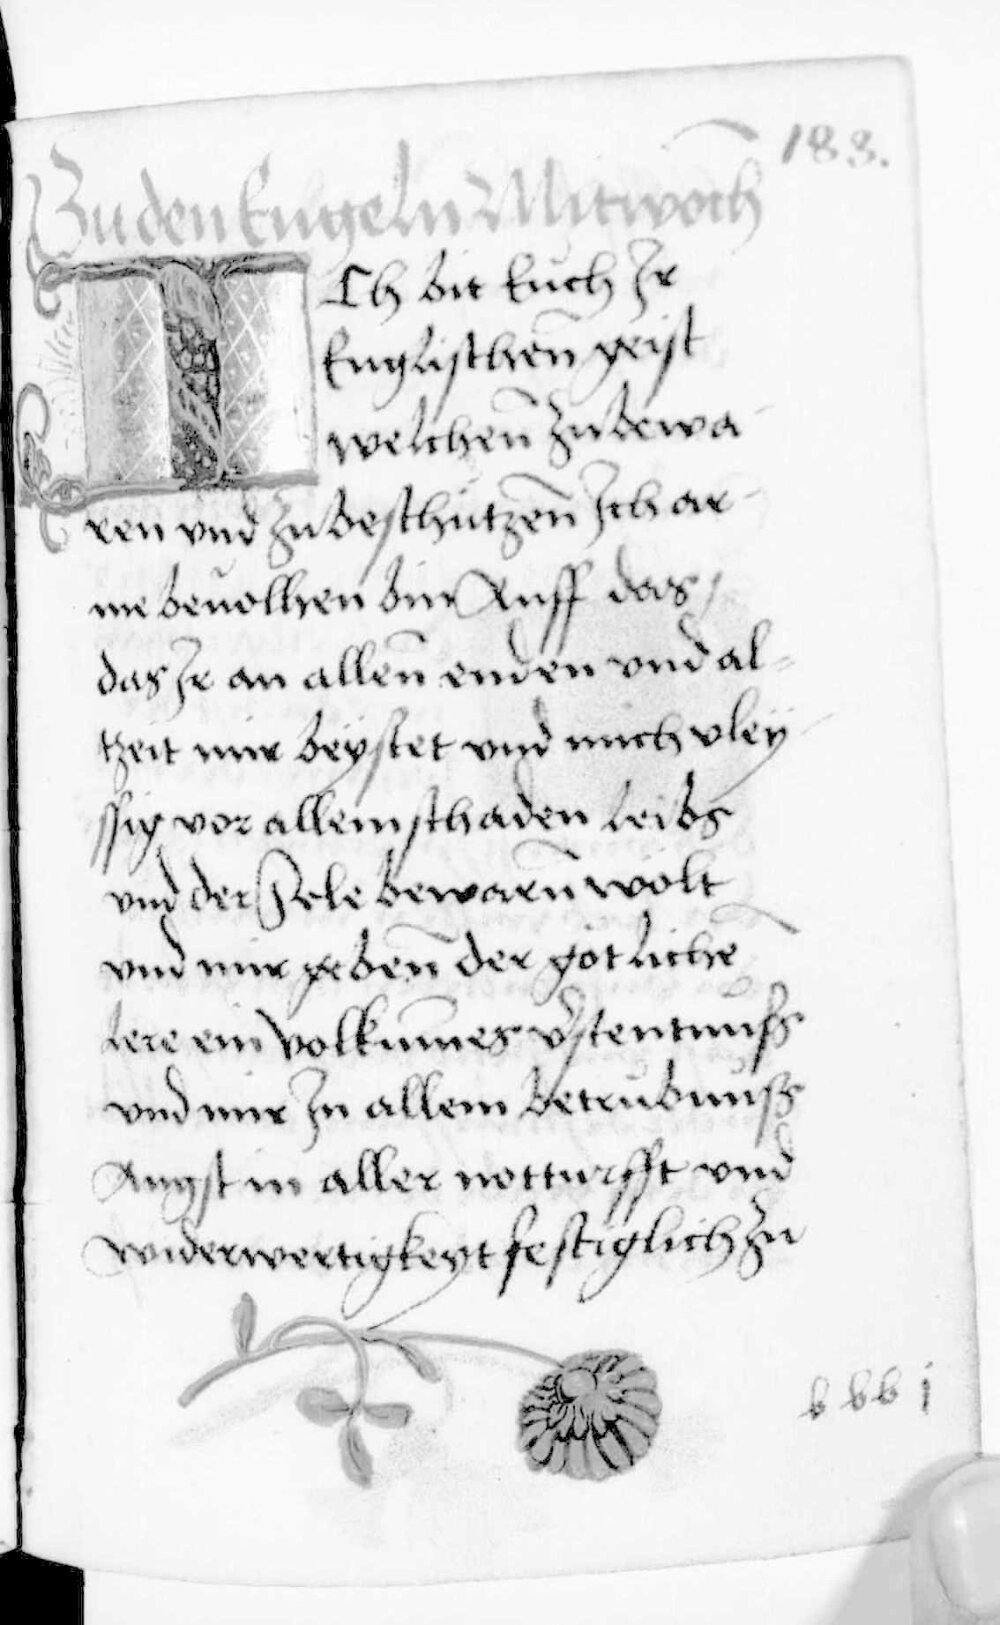 183.
Zu den Engeln Mitwoch
ICh bit Euch Jr
Englischen̄ geist
welchen̄ zu bewa-
ren vnd zu beschützen̄ Ich ar-
me beuolhen bin Auff das/
das Jr an allen̄ enden vnd al-
tzeit mir beystet vnd mich vley-
ssig vor allem schaden leibs
vnd der Sele bewarn̄ wölt
vnd mir geben̄ der götlichē
lere ein Volkum̄es v̄stentnuß
vnd mir Jn allem betrübnuß
Angst in aller notturfft vnd
widerwertigkeyt festiglich zu
b b b j